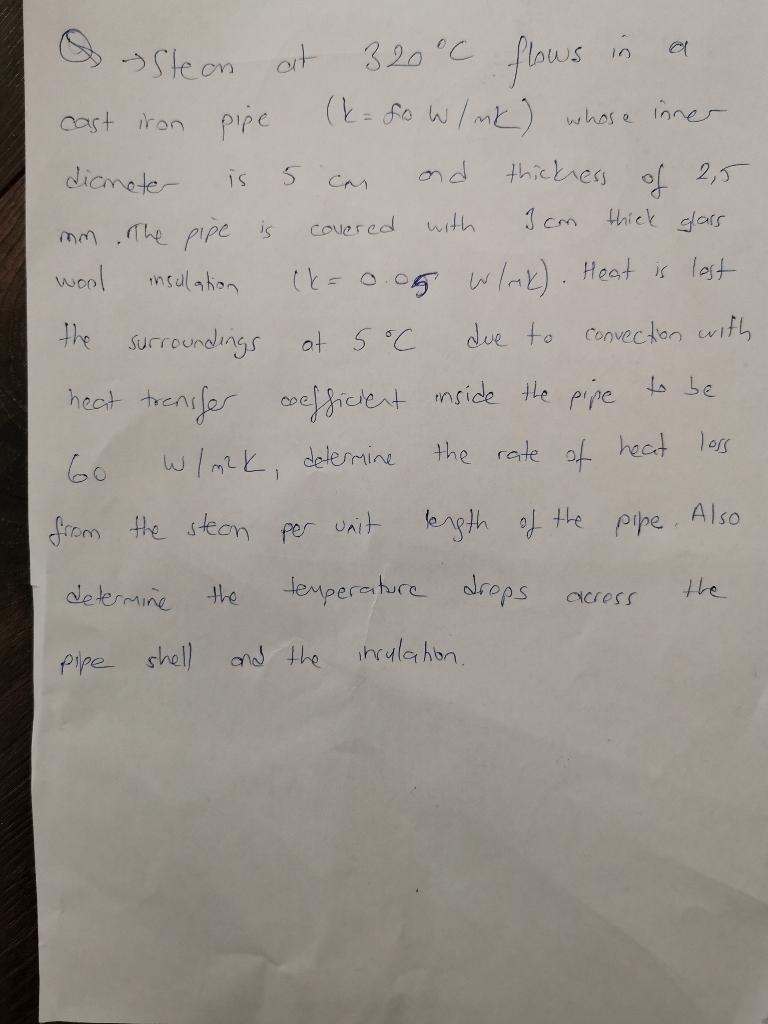 Q → Steam at 320 °C flows in a
cast iron pipe (k = 80 W/mK) whose inner
diameter is 5 cm and thickness of 2,5
mm. The pipe is covered with 3 cm thick glass
wool insulation (k = 0.05 W/mK). Heat is lost
the surroundings at 5 °C due to convection with
heat transfer coefficient inside the pipe to be
60 W/m²K, determine the rate of heat loss
from the steam per unit length of the pipe. Also
determine the temperature drops across the
pipe shell and the insulation.